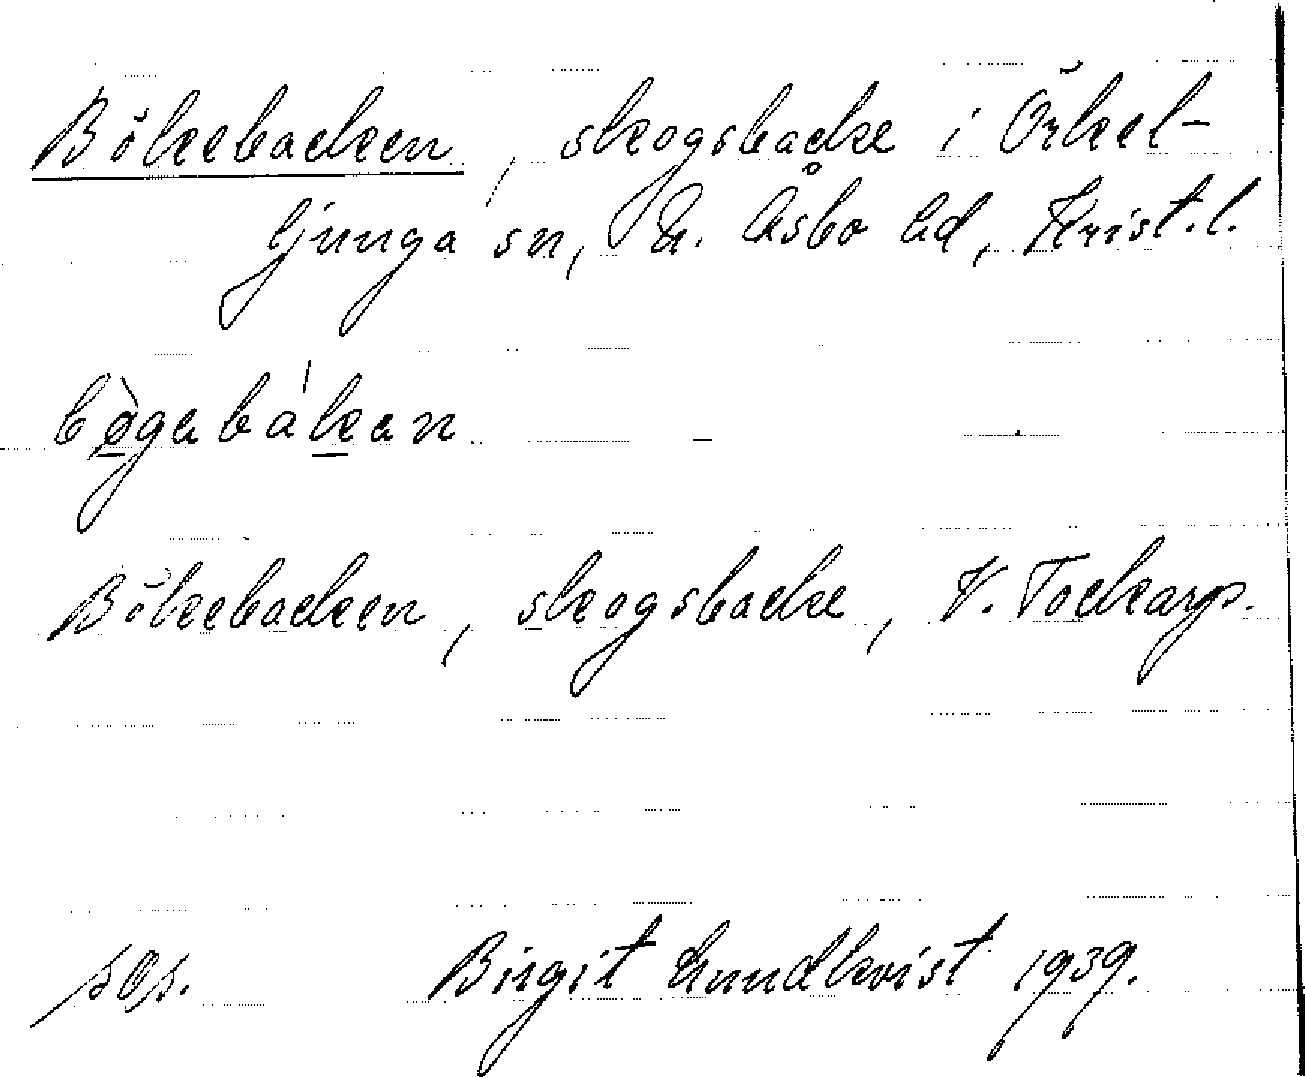 Bökebacken, skogsbacke i Örkel-
ljunga sn, N. Åsbo hd, Krist. l.
bø̀gabákan
Bökebacken, skogsbacke, V. Tockarp.
Birgit Lundkvist 1939.